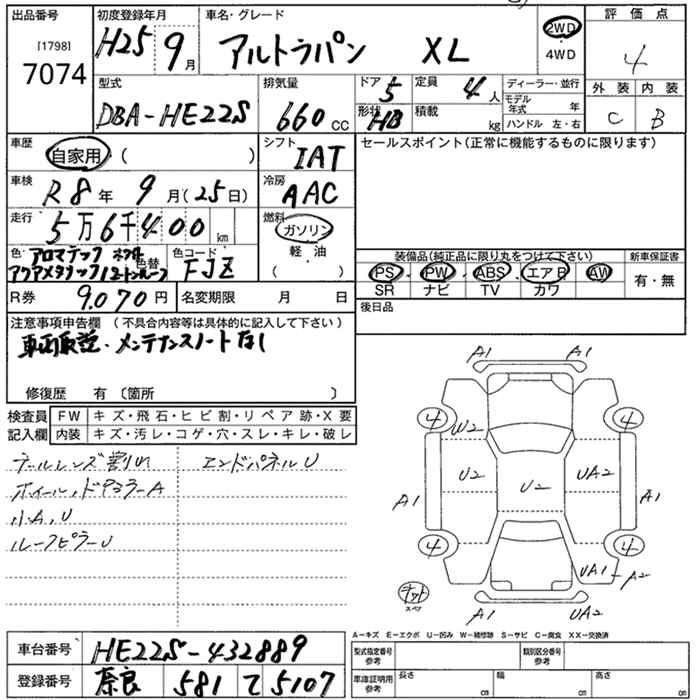 出品番号
[1798]
7074
初度登録年月
H25 9月
車名・グレード
アルトラパン XL
2WD
・
4WD
評価点
4
型式
DBA-HE22S
排気量
660cc
ドア
5
形状
HB
定員
4人
積載
kg
ディーラー・並行
モデル年式 年
ハンドル 左・右
外装
C
内装
B
車歴
自家用・( )
シフト
IAT
セールスポイント(正常に機能するものに限ります)
車検
R8年 9月(25日)
冷房
AAC
走行
5万6千400km
燃料
ガソリン
・
軽・油
( )
色・
色替
アクアメタリック
色コード
FJZ
装備品(純正品に限り丸をつけて下さい)
PS・PW・ABS・エアB・AW
SR ナビ TV カワ
新車保証書
有・無
R券 9,070円
名変期限 月 日
後日品
注意事項申告欄 (不具合内容等は具体的に記入して下さい)
車両取説・メンテナンスノートなし
修復歴 有 〔箇所 〕
検査員
記入欄
FW キズ・飛石・ヒビ割・リペア跡・X要
内装 キズ・汚レ・コゲ・穴・スレ・キレ・破レ
テールレンズ割れ
エンドパネルU
ホイール、ドアミラーA
小A,U
ルーフピラーU
A1 A1
4 4
W2
U2 U2 UA2
A1 A1
4 4
UA1-A2
キット
スペア
A1 UA2
A-キズ E-エクボ U-凹み W-補修跡 S-サビ C-腐食 XX-交換済
車台番号
HE22S-432889
登録番号
奈良 581 て 5107
型式指定番号
参考
類別区分番号
参考
車庫証明用
参考
長さ cm
幅 cm
高さ cm